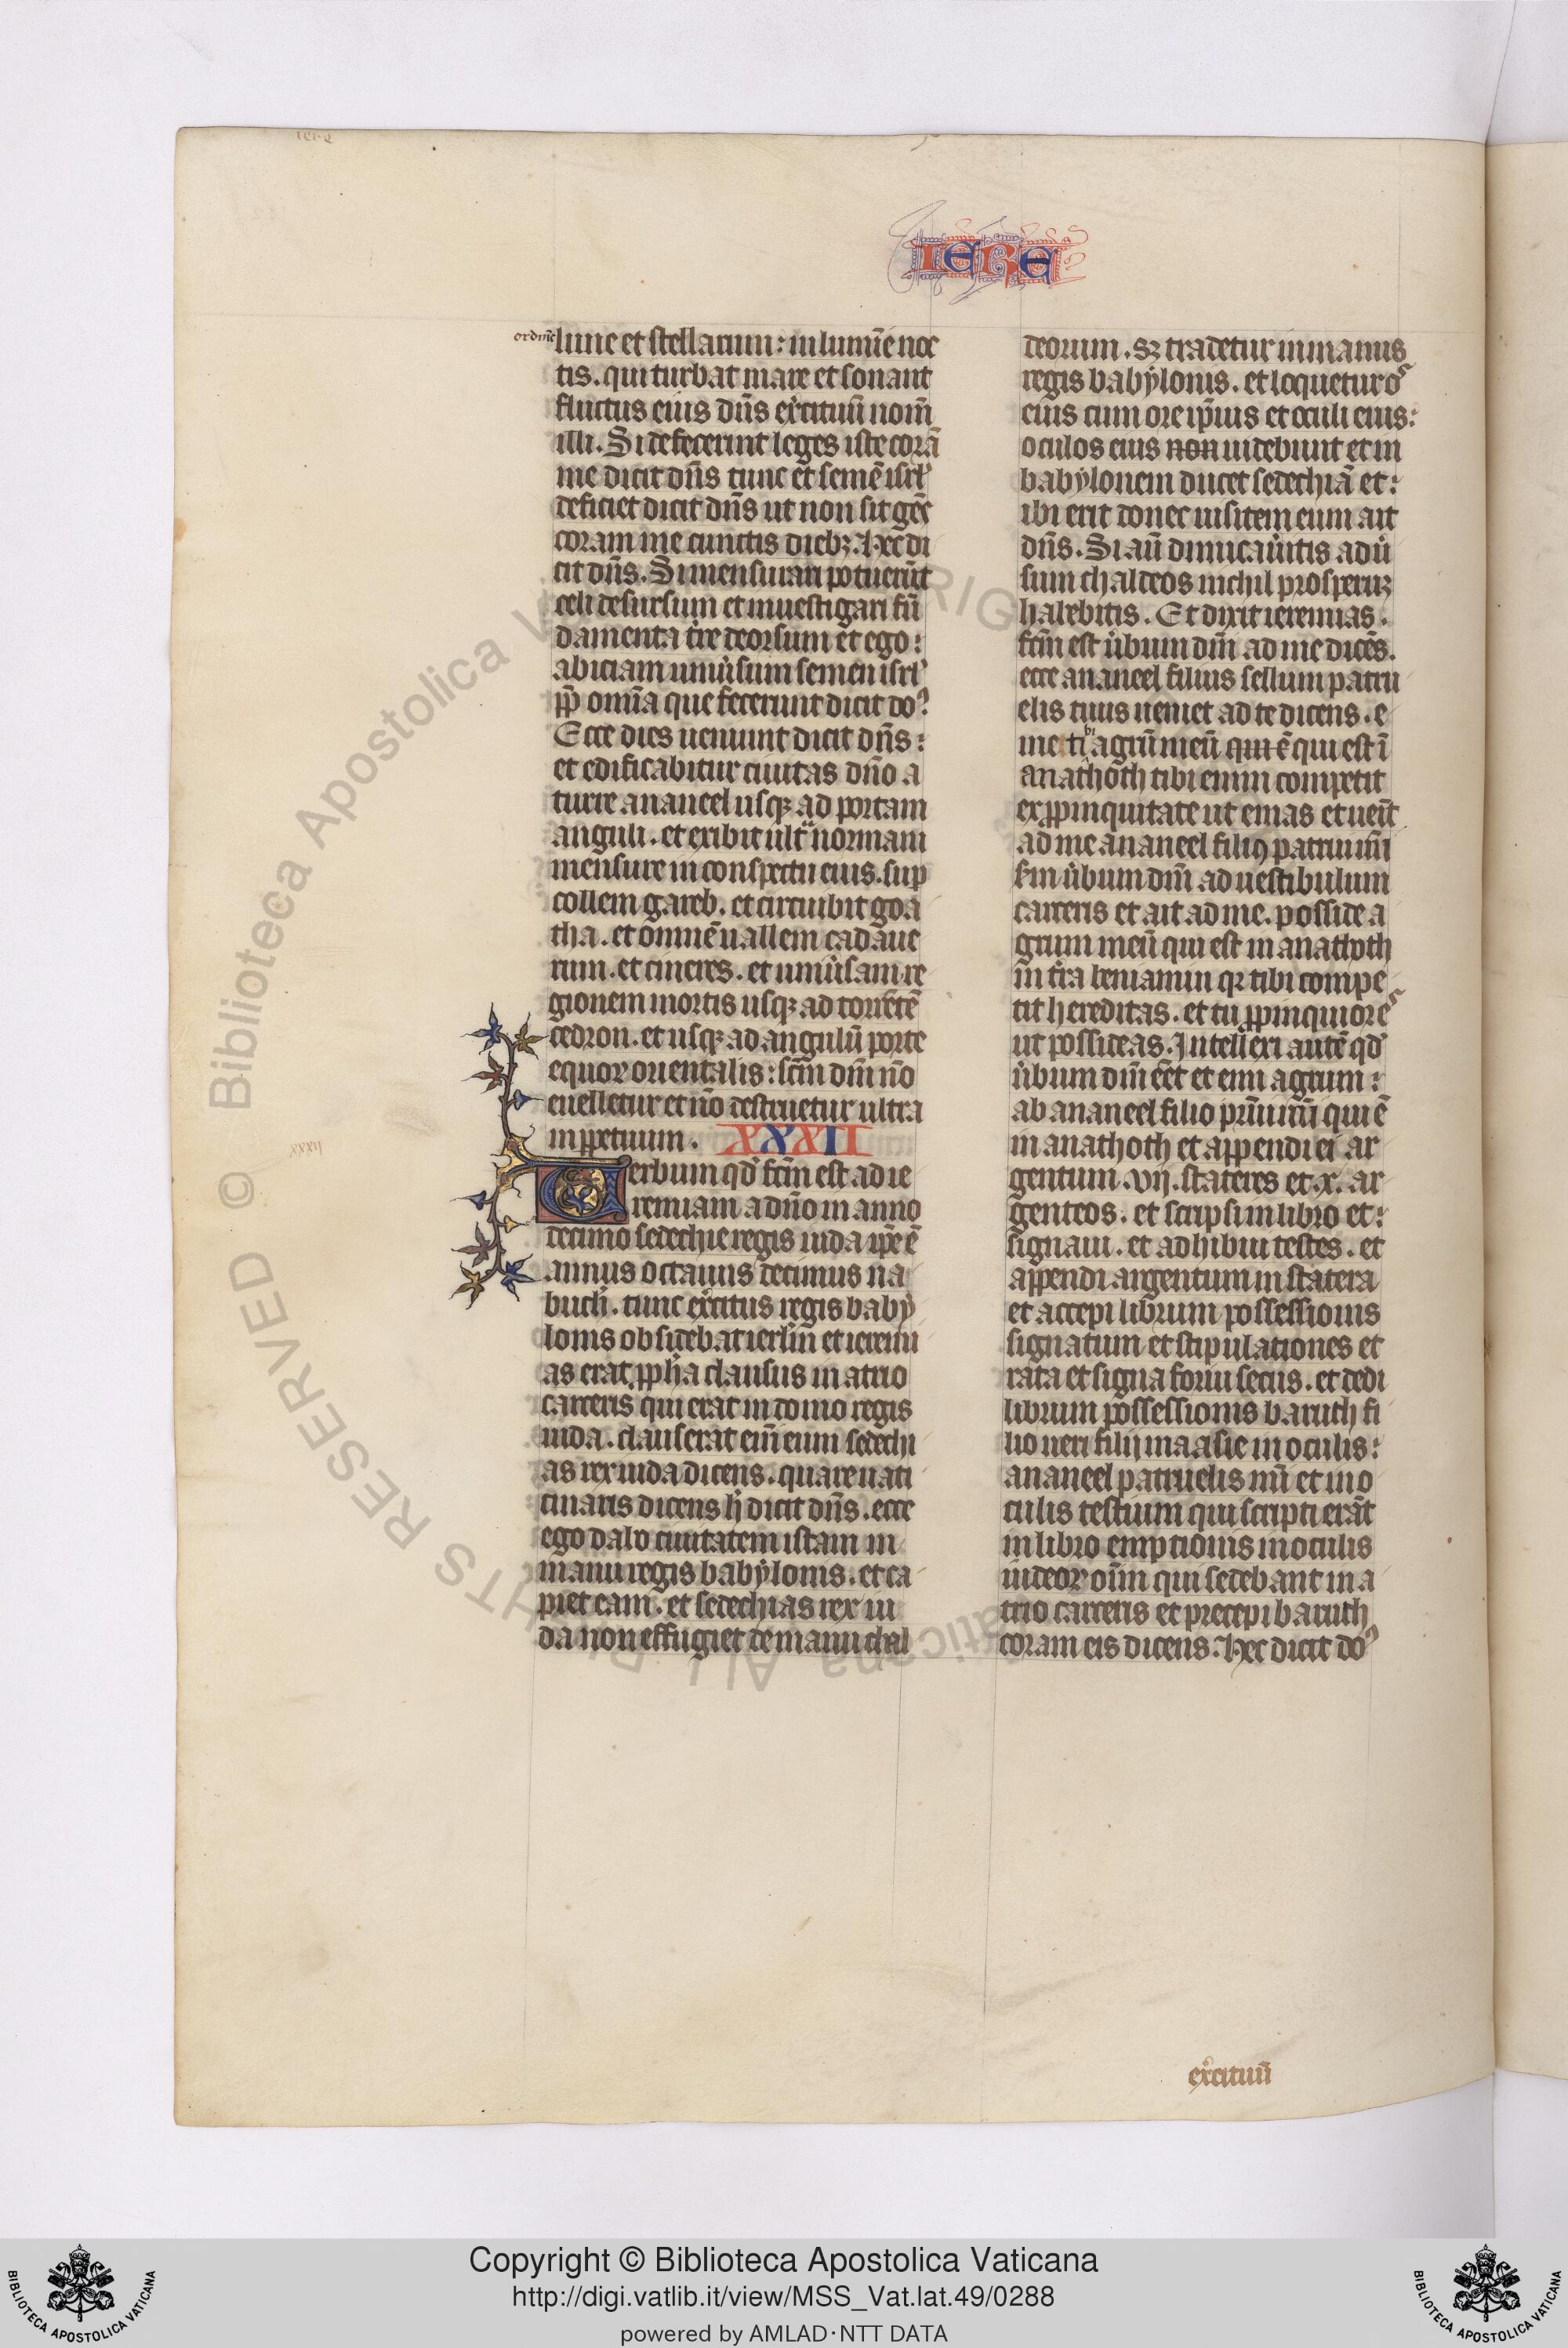 IERE
ordinē lune et stellarum: in lumīe noc
tis. qui turbat mare et sonant
fluctus eius dn̄s exͬcituū nom̄
illi. Si defecerint leges iste corā
me dicit dn̄s tunc et semē isrl̓
deficiet dicit dn̄s ut non sit gēs
coram me cunctis diebꝫ. Hec di
cit dn̄s. Si mensurari potuerūt
celi desursum et inuestigari fū
damenta tr̓re deorsum et ego:
abiciam uniūsum semen isrl̓
ꝓp̄ omīa que fecerunt dicit do᷒
Ecce dies ueniunt dicit dn̄s:
et edificabitur ciuitas dn̄o a
turre ananeel usqꝫ ad portam
anguli. et exibit ult̓ normam
mensure in conspectu eius. sup
collem gareb. et circuibit goa
tha. et omnē uallem cadaue
rum. et cineres. et uniūsam re
gionem mortis usqꝫ ad torrētē
cedron. et usqꝫ ad angulū porte
equoꝝ orientalis: sc̄m dn̄i nō
euelletur et nō destruetur ultra
in ꝑpetuum. XXXII
xxxij
Uerbum qd̓ fc̄m est ad ie
remiam a dn̄o in anno
decimo sedechie regis iuda ip̄e ē
annus octauus decimus na
buch̓. tunc exͬcitus regis baby
lonis obsidebat ierl̄m et ieremi
as erat ꝓph̄a clausus in atrio
carceris qui erat in domo regis
iuda. clauserat em̄ eum sedechi
as rex iuda dicens. quare uati
cinaris dicens h̓ dicit dn̄s. ecce
ego dabo ciuitatem istam in
manu regis babylonis. et ca
piet eam. et sedechias rex iu
da non effugiet de manu chal
deorum. sꝫ tradetur in manus
regis babylonis. et loquetur os
eius cum ore ip̄ius et oculi eius:
oculos eius non uidebunt et in
babylonem ducet sedechiā et:
ibi erit donec uisitem eum ait
dn̄s. Si aū dimicaūitis adū
sum chaldeos nichil prosperuꝫ
habebitis. Et dixit ieremias.
fc̄m est ūbum dn̄i ad me dicēs.
ecce ananeel filius sellum patru
elis tuus ueniet ad te dicens. e
me tibi agrū meū qui ē qui est ī
anathoth tibi enim competit
ex ꝓpinquitate ut emas et uenīt
ad me ananeel filiꝯ patrui m̄i
sc̄m ūbum dn̄i ad uestibulum
carceris et ait ad me. posside a
grum meū qui est in anathoth
in tr̄a beniamin qꝛ tibi compe
tit hereditas. et tu ꝓpinquior es
ut possideas. Intellexi autē qd̓
ūbum dn̄i eēt et emi agrum:
ab ananeel filio pr̄ui mī qui ē
in anathoth et appendi ei ar
gentum. vij. stateres et .x. ar
genteos. et scripsi in libro et:
signaui. et adhibui testes. et
appendi argentum in statera
et accepi librum possessionis
signatum et stipulationes et
rata et signa forinsecus. et dedi
librum possessionis baruch fi
lio neri filij maasie in oculis:
ananeel patruelis mī et in o
culis testium qui scripti erāt
in libro emptionis in oculis
iudeoꝝ oīm qui sedebant in a
trio carceris et precepi baruch
coram eis dicens. Hec dicit do᷒
exͬcituū
© Biblioteca Apostolica Vaticana ALL RIGHTS RESERVED
Copyright © Biblioteca Apostolica Vaticana
http://digi.vatlib.it/view/MSS_Vat.lat.49/0288
powered by AMLAD·NTT DATA
BIBLIOTECA APOSTOLICA VATICANA
BIBLIOTECA APOSTOLICA VATICANA